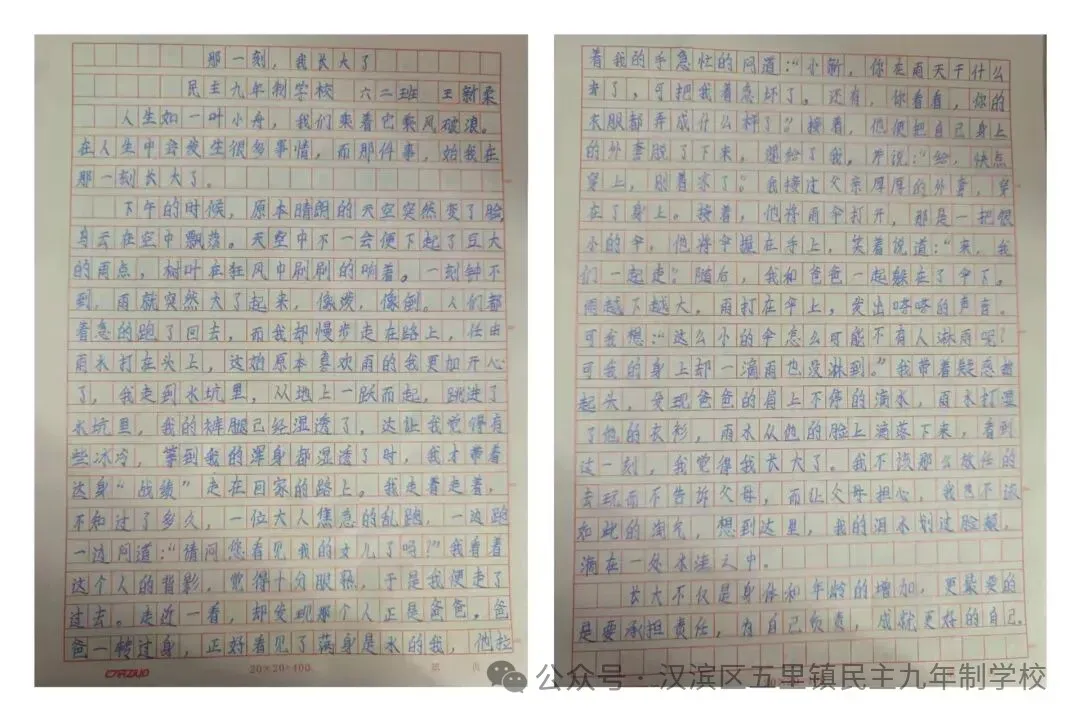 那一刻，我长大了
民主九年制学校 六二班 王新柔
人生如一叶小舟，我们乘着它乘风破浪。
在人生中会发生很多事情，而那件事，始我在
那一刻长大了。
下午的时候，原本晴朗的天空突然变了脸，
乌云在空中飘荡。天空中不一会便下起了豆大
的雨点，树叶在狂风中刷刷的响着。一刻钟不
到，雨就突然大了起来，像泼，像倒。人们都
着急的跑了回去，而我却慢步走在路上，任由
雨水打在头上，这始原本喜欢雨的我更加开心
了，我走到水坑里，从地上一跃而起，跳进了
水坑里，我的裤腿已经湿透了，这让我觉得有
些冰冷，等到我的浑身都湿透了时，我才带着
这身“战绩”走在回家的路上。我走着走着，
不知过了多久，一位大人焦急的乱跑，一边跑
一边问道：“请问您看见我的女儿了吗？”我看着
这个人的背影，觉得十分眼熟，于是我便走了
过去。走近一看，却发现那个人正是爸爸。爸
爸一转过身，正好看见了落身是水的我，他拉
CARZUO 20×20=400 第 页
着我的手急忙的问道：“小新，你在雨天干什么
去了，可把我着急坏了。还有，你看看，你的
衣服都弄成什么样了？”接着，他便把自己身上
的外套脱了下来，递给了我。并说：“给，快点
穿上，别着凉了。”我接过父亲厚厚的外套，穿
在了身上。接着，他将雨伞打开，那是一把很
小的伞，他将伞握在手上，笑着说道：“来，我
们一起走”。随后，我和爸爸一起躲在了伞下。
雨越下越大，雨打在伞上，发出哒哒的声音。
可我想：“这么小的伞怎么可能不有人淋雨呢？
可我的身上却一滴雨也没淋到。”我带着疑惑抬
起头，发现爸爸的肩上不停的滴水，雨水打湿
了他的衣衫，雨水从他的脸上滴落下来，看到
这一刻，我觉得我长大了。我不该那么放任的
去玩而不告诉父母，而让父母担心，我也不该
如此的淘气，想到这里，我的泪水划过脸颊，
滴在一处水洼之中。
长大不仅是身体和年龄的增加，更重要的
是要承担责任，为自己负责，成就更好的自己。
公众号·汉滨区五里镇民主九年制学校